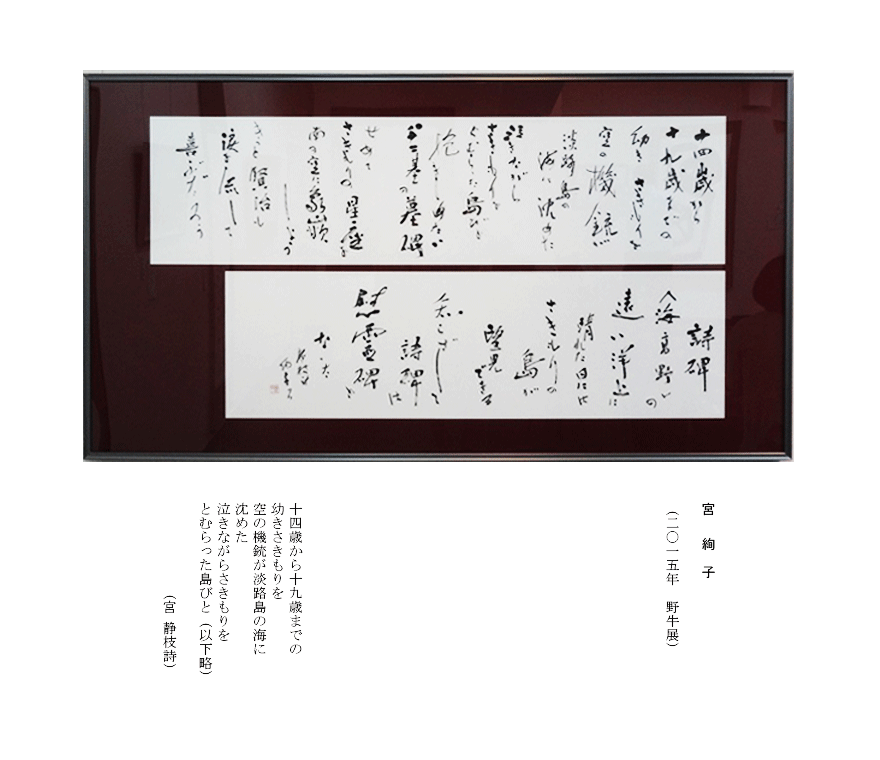 十四歳から
十九歳までの
幼きさきもりを
空の機銃が
淡路島の
海に沈めた
泣きながら
さきもりを
とむらった島びと
八十二基の墓碑
せめて
さきもりの星座を
南の空に
きっと賢治も
涙を流して
喜ぶだろう
詩碑
遠い洋上に
晴れた日には
さきもりの
島が
望見できる
詩碑は
慰霊碑に
なった
宮 絢子
(二〇一五年 野牛展)
十四歳から十九歳までの
幼きさきもりを
空の機銃が淡路島の海に
沈めた
泣きながらさきもりを
とむらった島びと(以下略)
(宮 静枝詩)